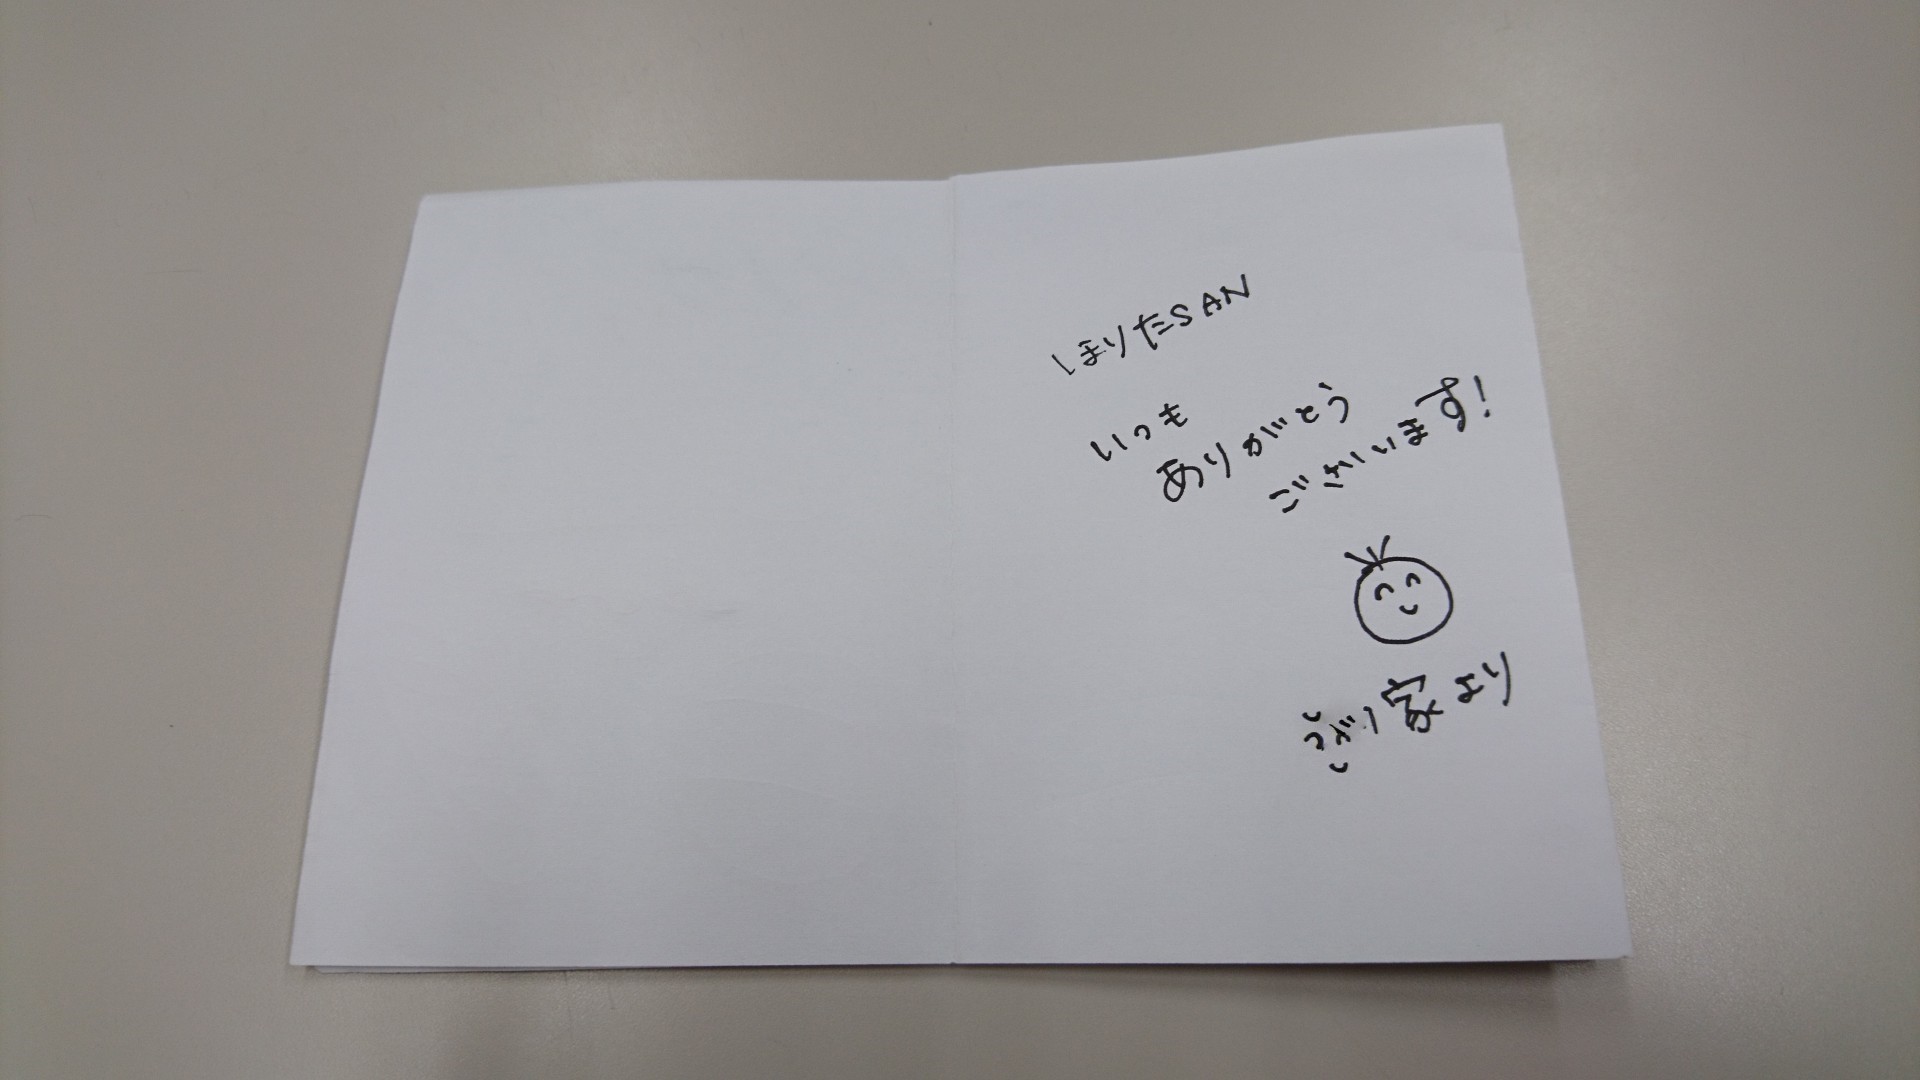 しまりだSAN
いつも
ありがとう
ございます!
家より